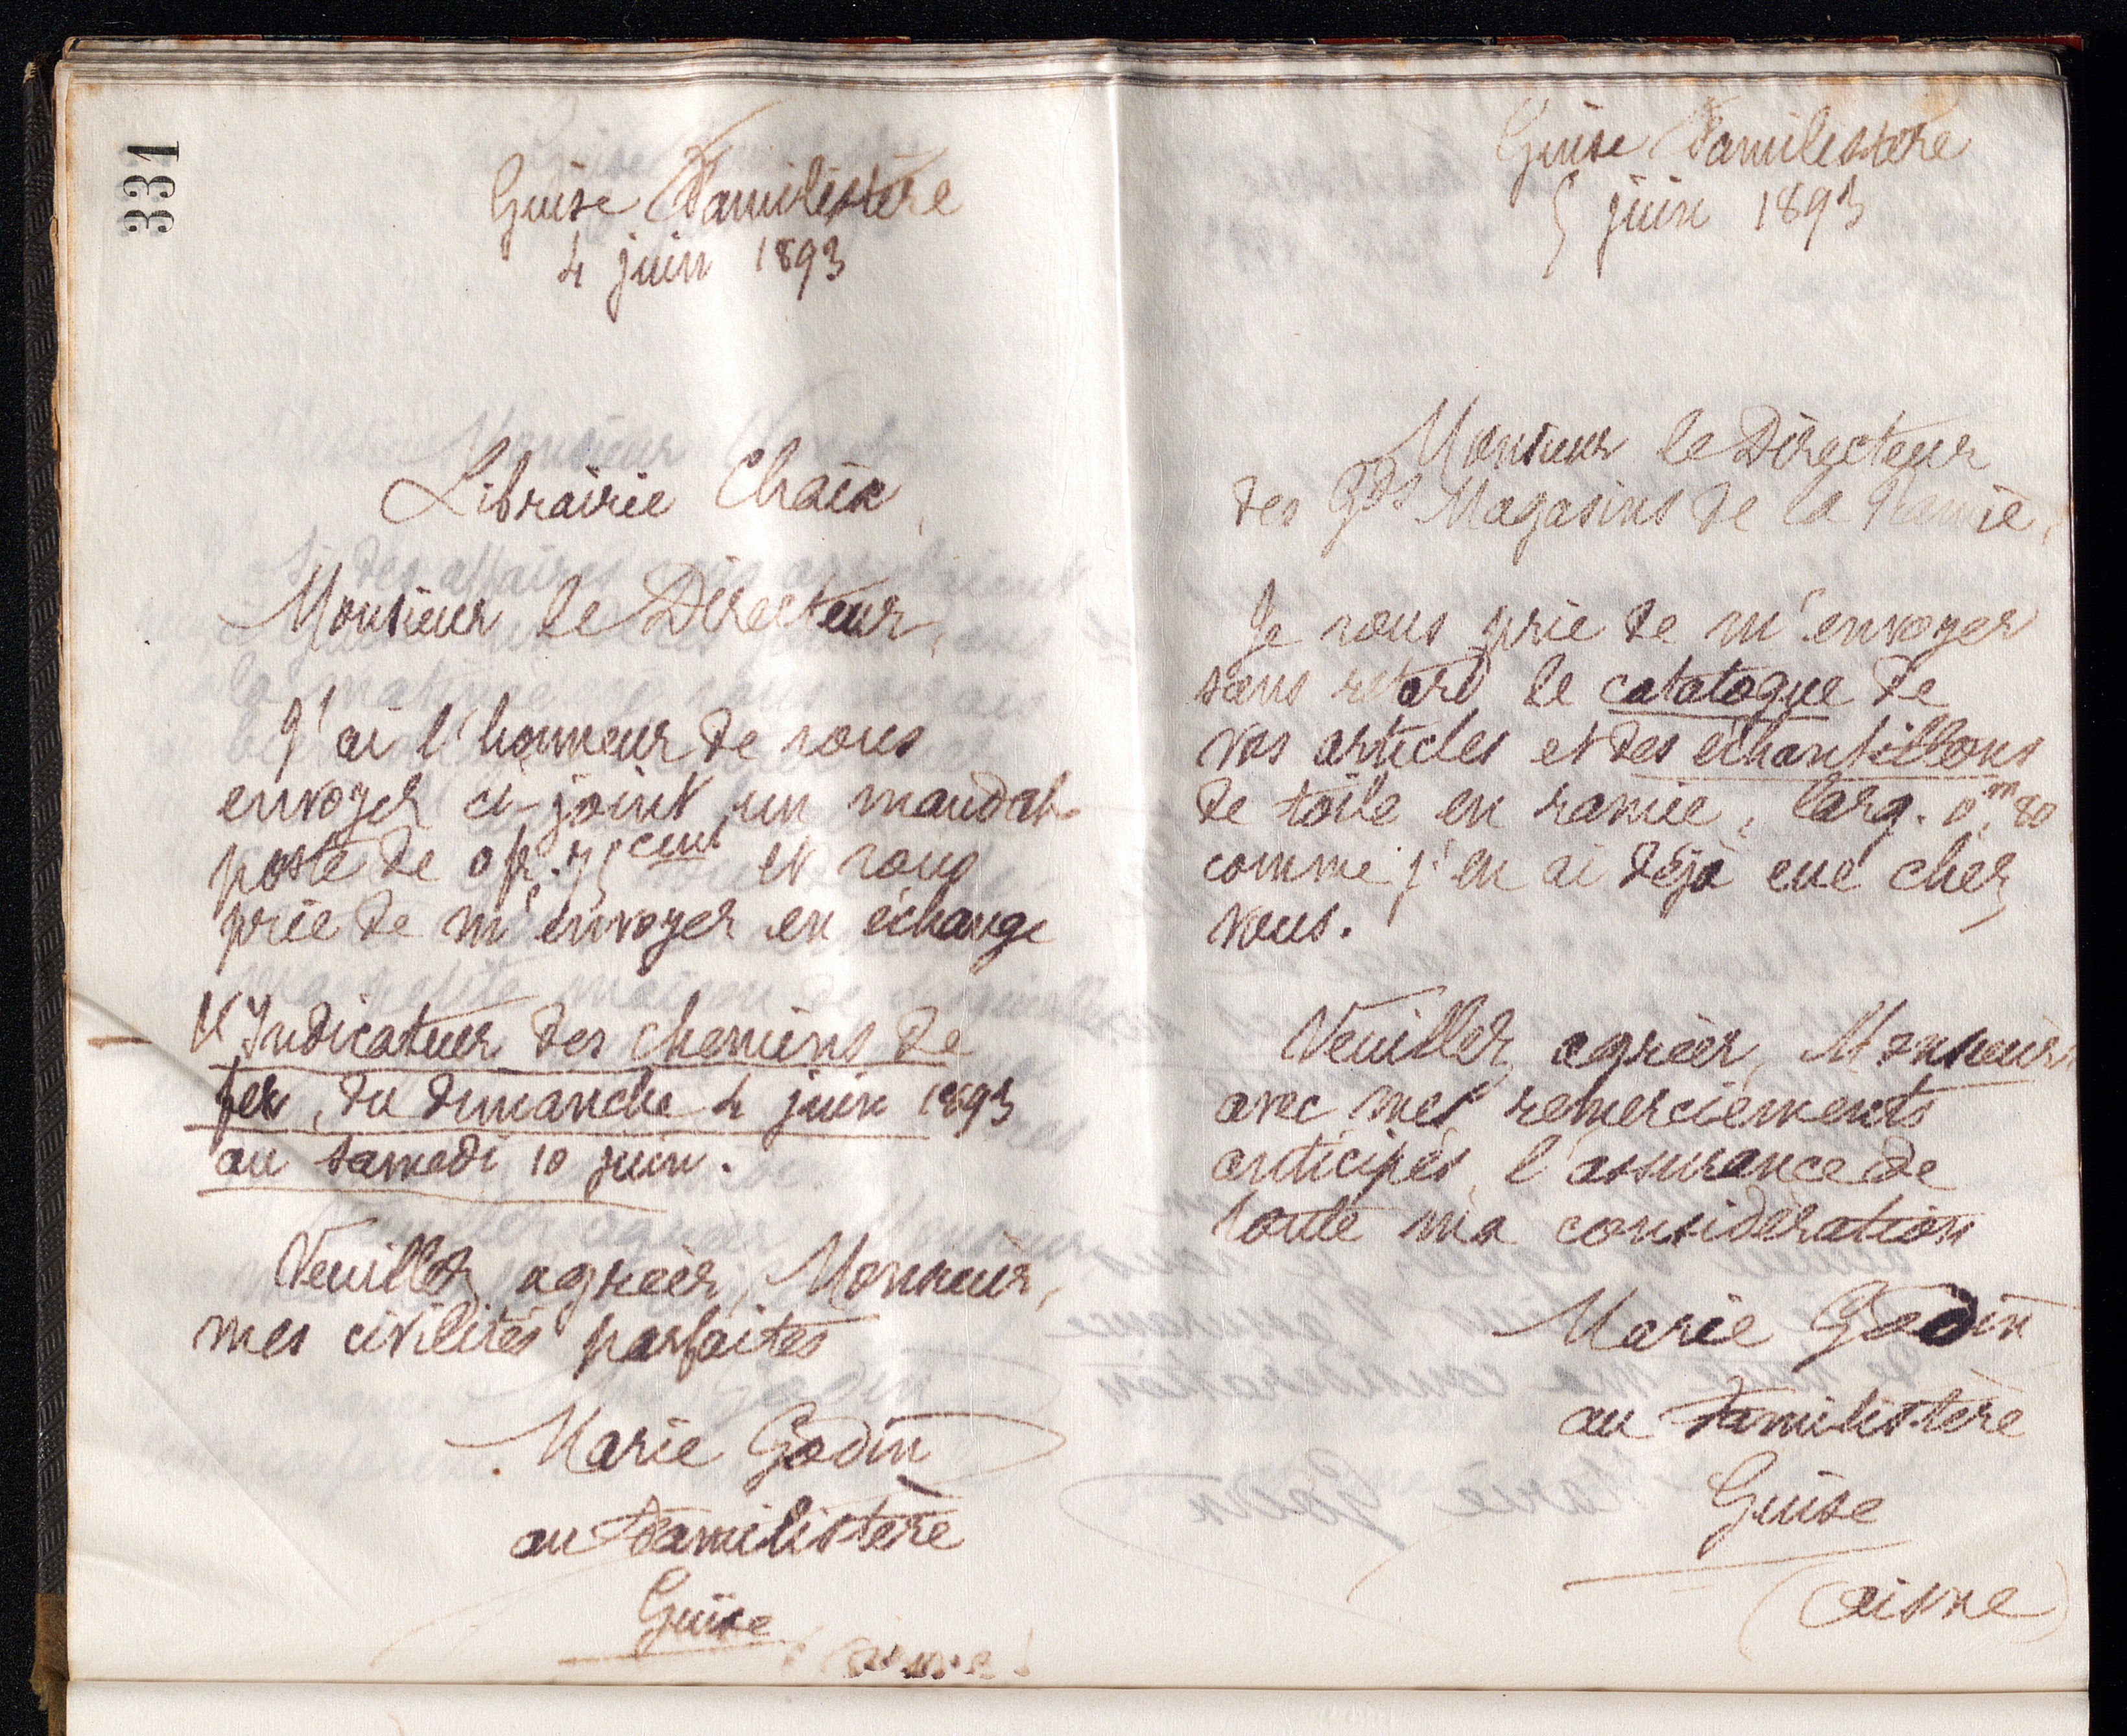 331
Guise Familistère
4 juin 1893
Librairie Chaix,
Monsieur le Directeur,
J'ai l'honneur de vous
envoyer ci-joint un mandat-
poste de 0 fr. 75 cent et vous
prie de m'envoyer en échange
l'Indicateur des chemins de
fer, du dimanche 4 juin 1893
au samedi 10 juin.
Veuillez agréer, Monsieur,
mes civilités parfaites
Marie Godin
au Familistère
Guise
(Aisne)
Guise Familistère
5 juin 1893
Monsieur le Directeur
des Gds Magasins de la Ramie,
Je vous prie de m'envoyer
sans retard le catalogue de
vos articles et des échantillons
de toile en ramie, larg. 0m,80,
comme j'en ai déjà eue chez
vous.
Veuillez agréer, Monsieur,
avec mes remerciements
anticipés, l'assurance de
toute ma considération
Marie Godin
au Familistère
Guise
(Aisne)